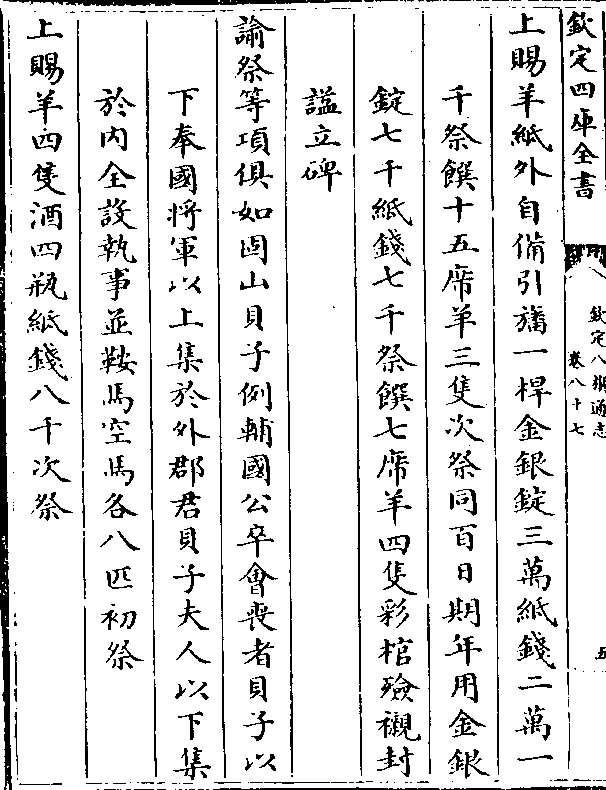 欽定四庫全書
欽定八旗通志
卷八十七
五
上賜羊紙外自備引旛一桿金銀錠三萬紙錢二萬一
千祭饌十五席羊三隻次祭同百日期年用金銀
錠七千紙錢七千祭饌七席羊四隻彩棺殮襯封
諡立碑
諭祭等項俱如固山貝子例輔國公卒會喪者貝子以
下奉國將軍以上集於外郡君貝子夫人以下集
於内全設執事並鞍馬空馬各八匹初祭
上賜羊四隻酒四瓶紙錢八千次祭